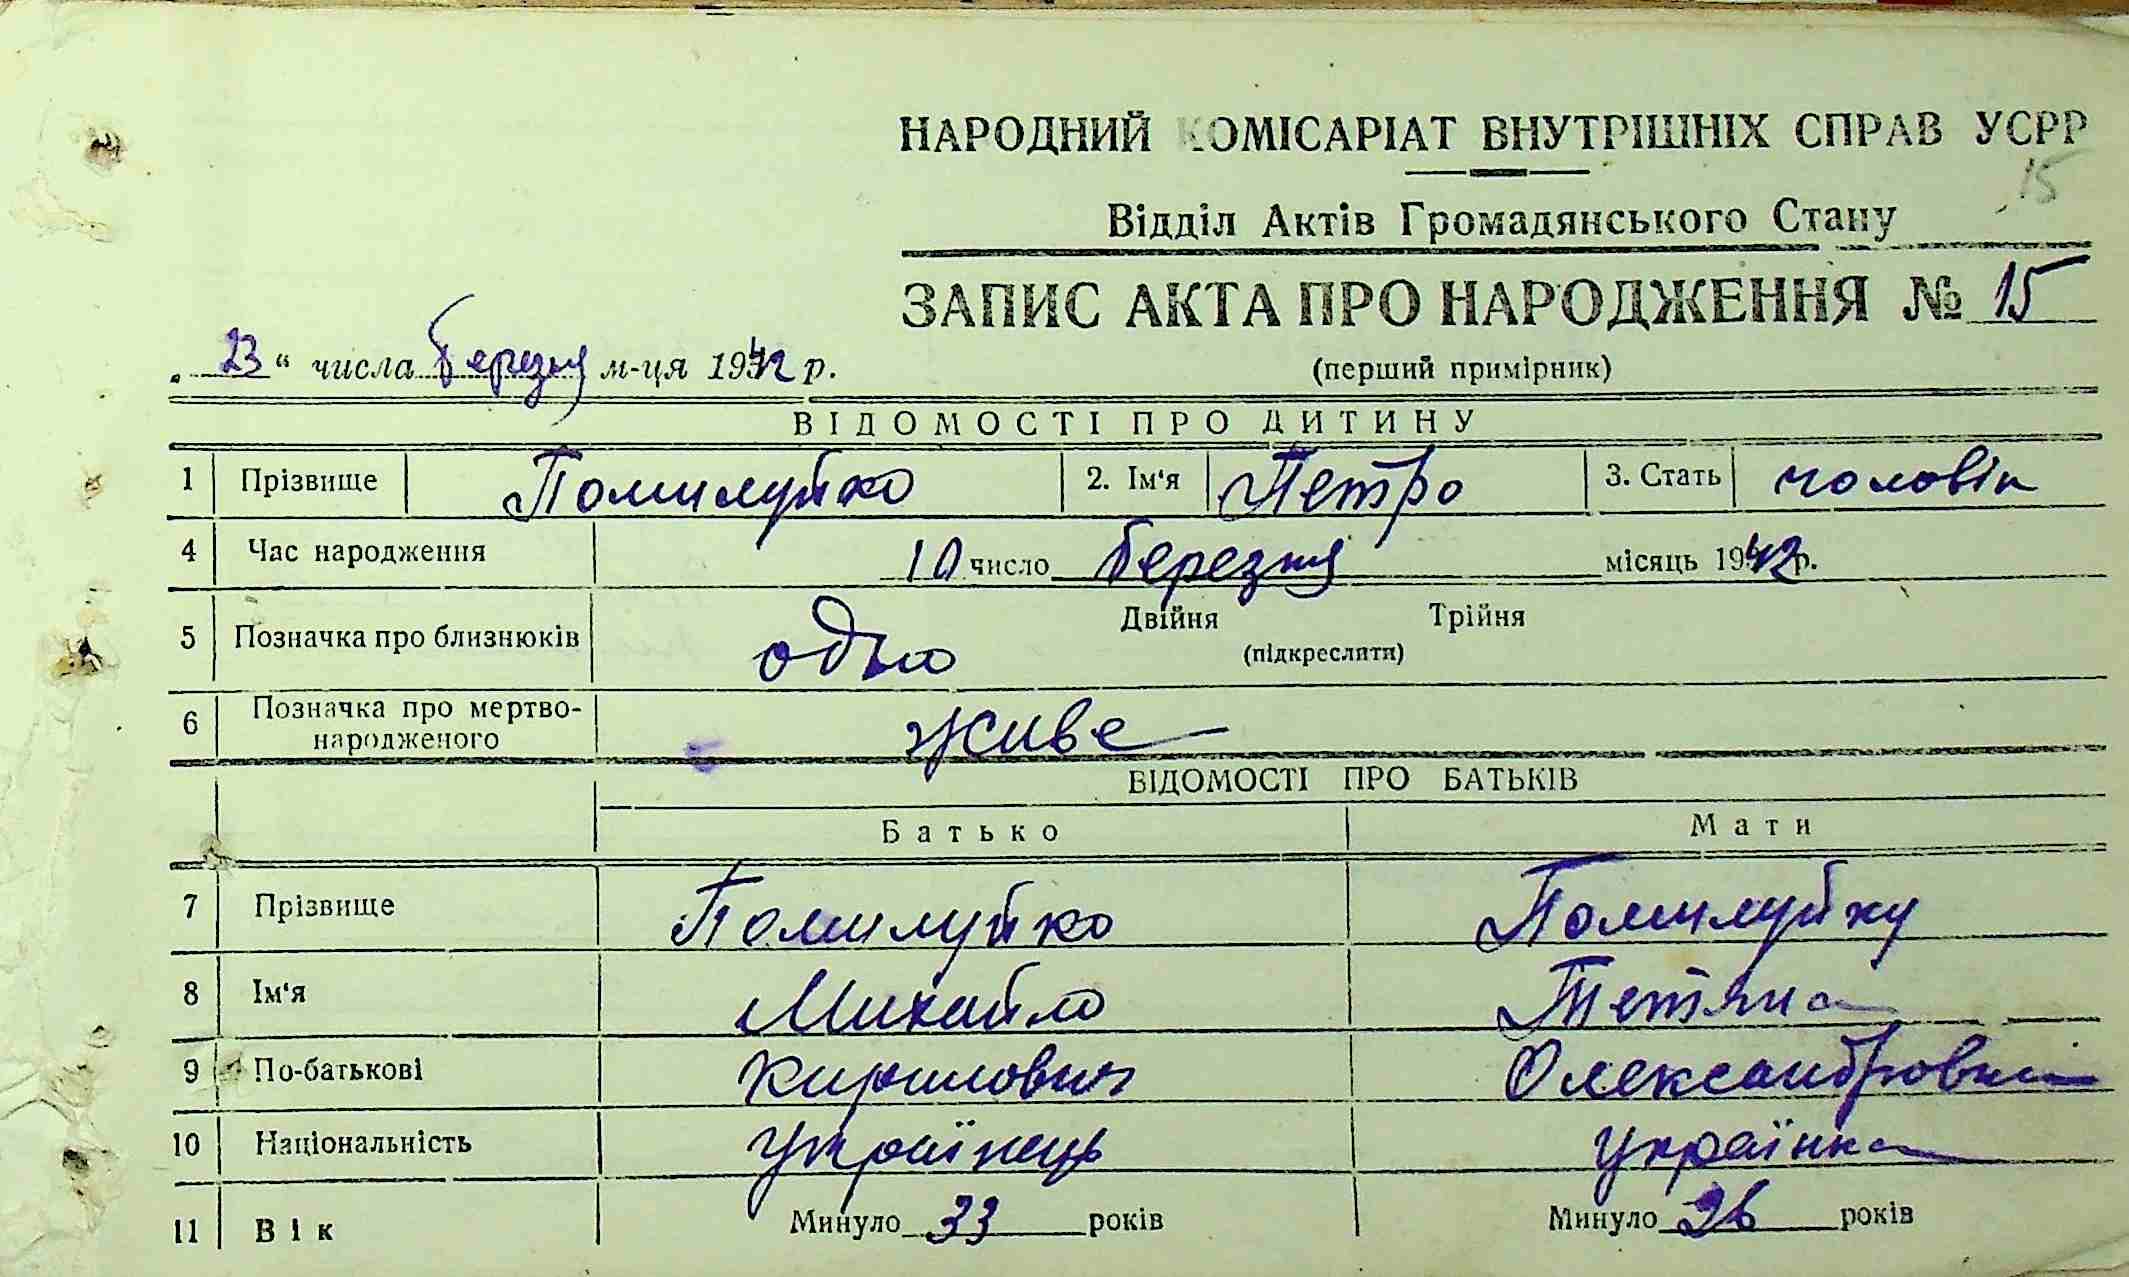 НАРОДНИЙ КОМІСАРІАТ ВНУТРІШНІХ СПРАВ УСРР
15
Відділ Актів Громадянського Стану
ЗАПИС АКТА ПРО НАРОДЖЕННЯ № 15
„ 23 “ числа березня м-ця 1942 р.
(перший примірник)
ВІДОМОСТІ ПРО ДИТИНУ
1 Прізвище Помилуйко 2. Ім'я Петро 3. Стать чоловік
4 Час народження 10 число березня місяць 1942 р.
5 Позначка про близнюків одно Двійня Трійня
(підкреслити)
6 Позначка про мертво-
народженого живе
ВІДОМОСТІ ПРО БАТЬКІВ
Батько Мати
7 Прізвище Помилуйко Помилуйку
8 Ім'я Михайло Тетяна
9 По-батькові Кирилович Олександровна
10 Національність Українець Українка
11 Вік Минуло 33 років Минуло 26 років